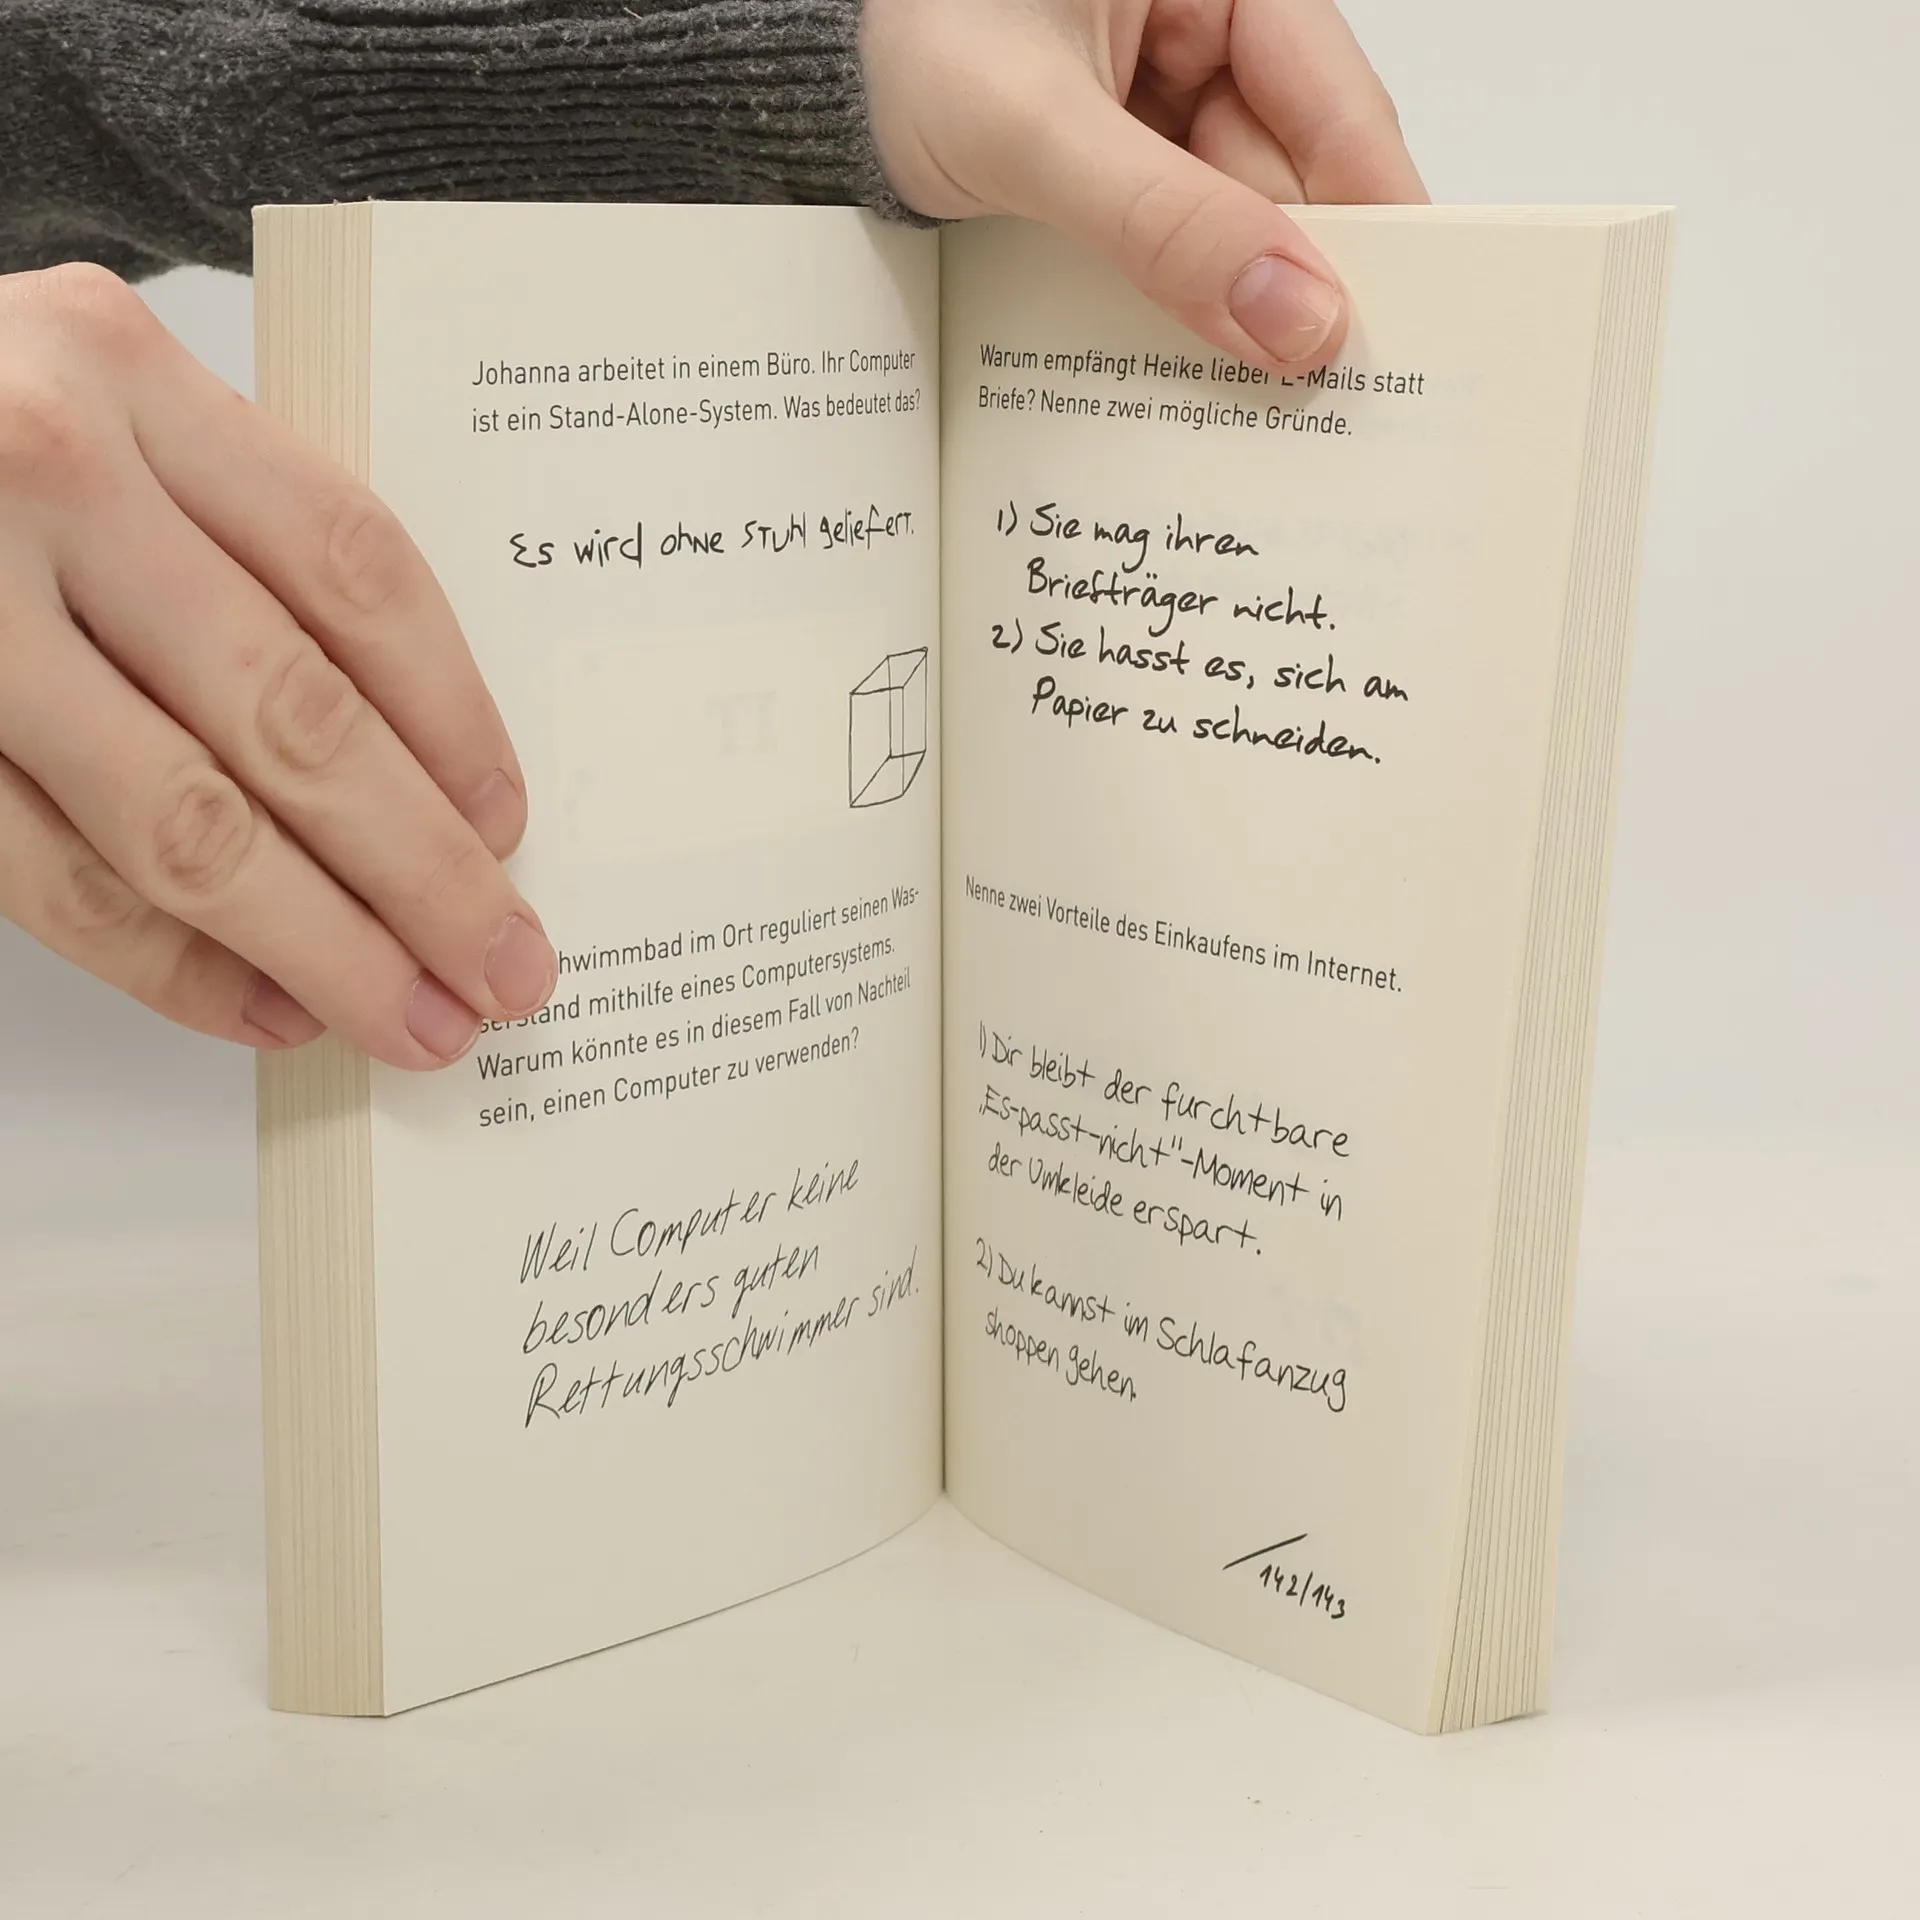 Johanna arbeitet in einem Büro. Ihr Computer
ist ein Stand-Alone-System. Was bedeutet das?
Es wird ohne Stuhl geliefert.
hwimmbad im Ort reguliert seinen Was-
serstand mithilfe eines Computersystems.
Warum könnte es in diesem Fall von Nachteil
sein, einen Computer zu verwenden?
Weil Computer keine
besonders guten
Rettungsschwimmer sind.
Warum empfängt Heike lieber E-Mails statt
Briefe? Nenne zwei mögliche Gründe.
1) Sie mag ihren
Briefträger nicht.
2) Sie hasst es, sich am
Papier zu schneiden.
Nenne zwei Vorteile des Einkaufens im Internet.
1) Dir bleibt der furchtbare
„Es-passt-nicht"-Moment in
der Umkleide erspart.
2) Du kannst im Schlafanzug
shoppen gehen.
142/143